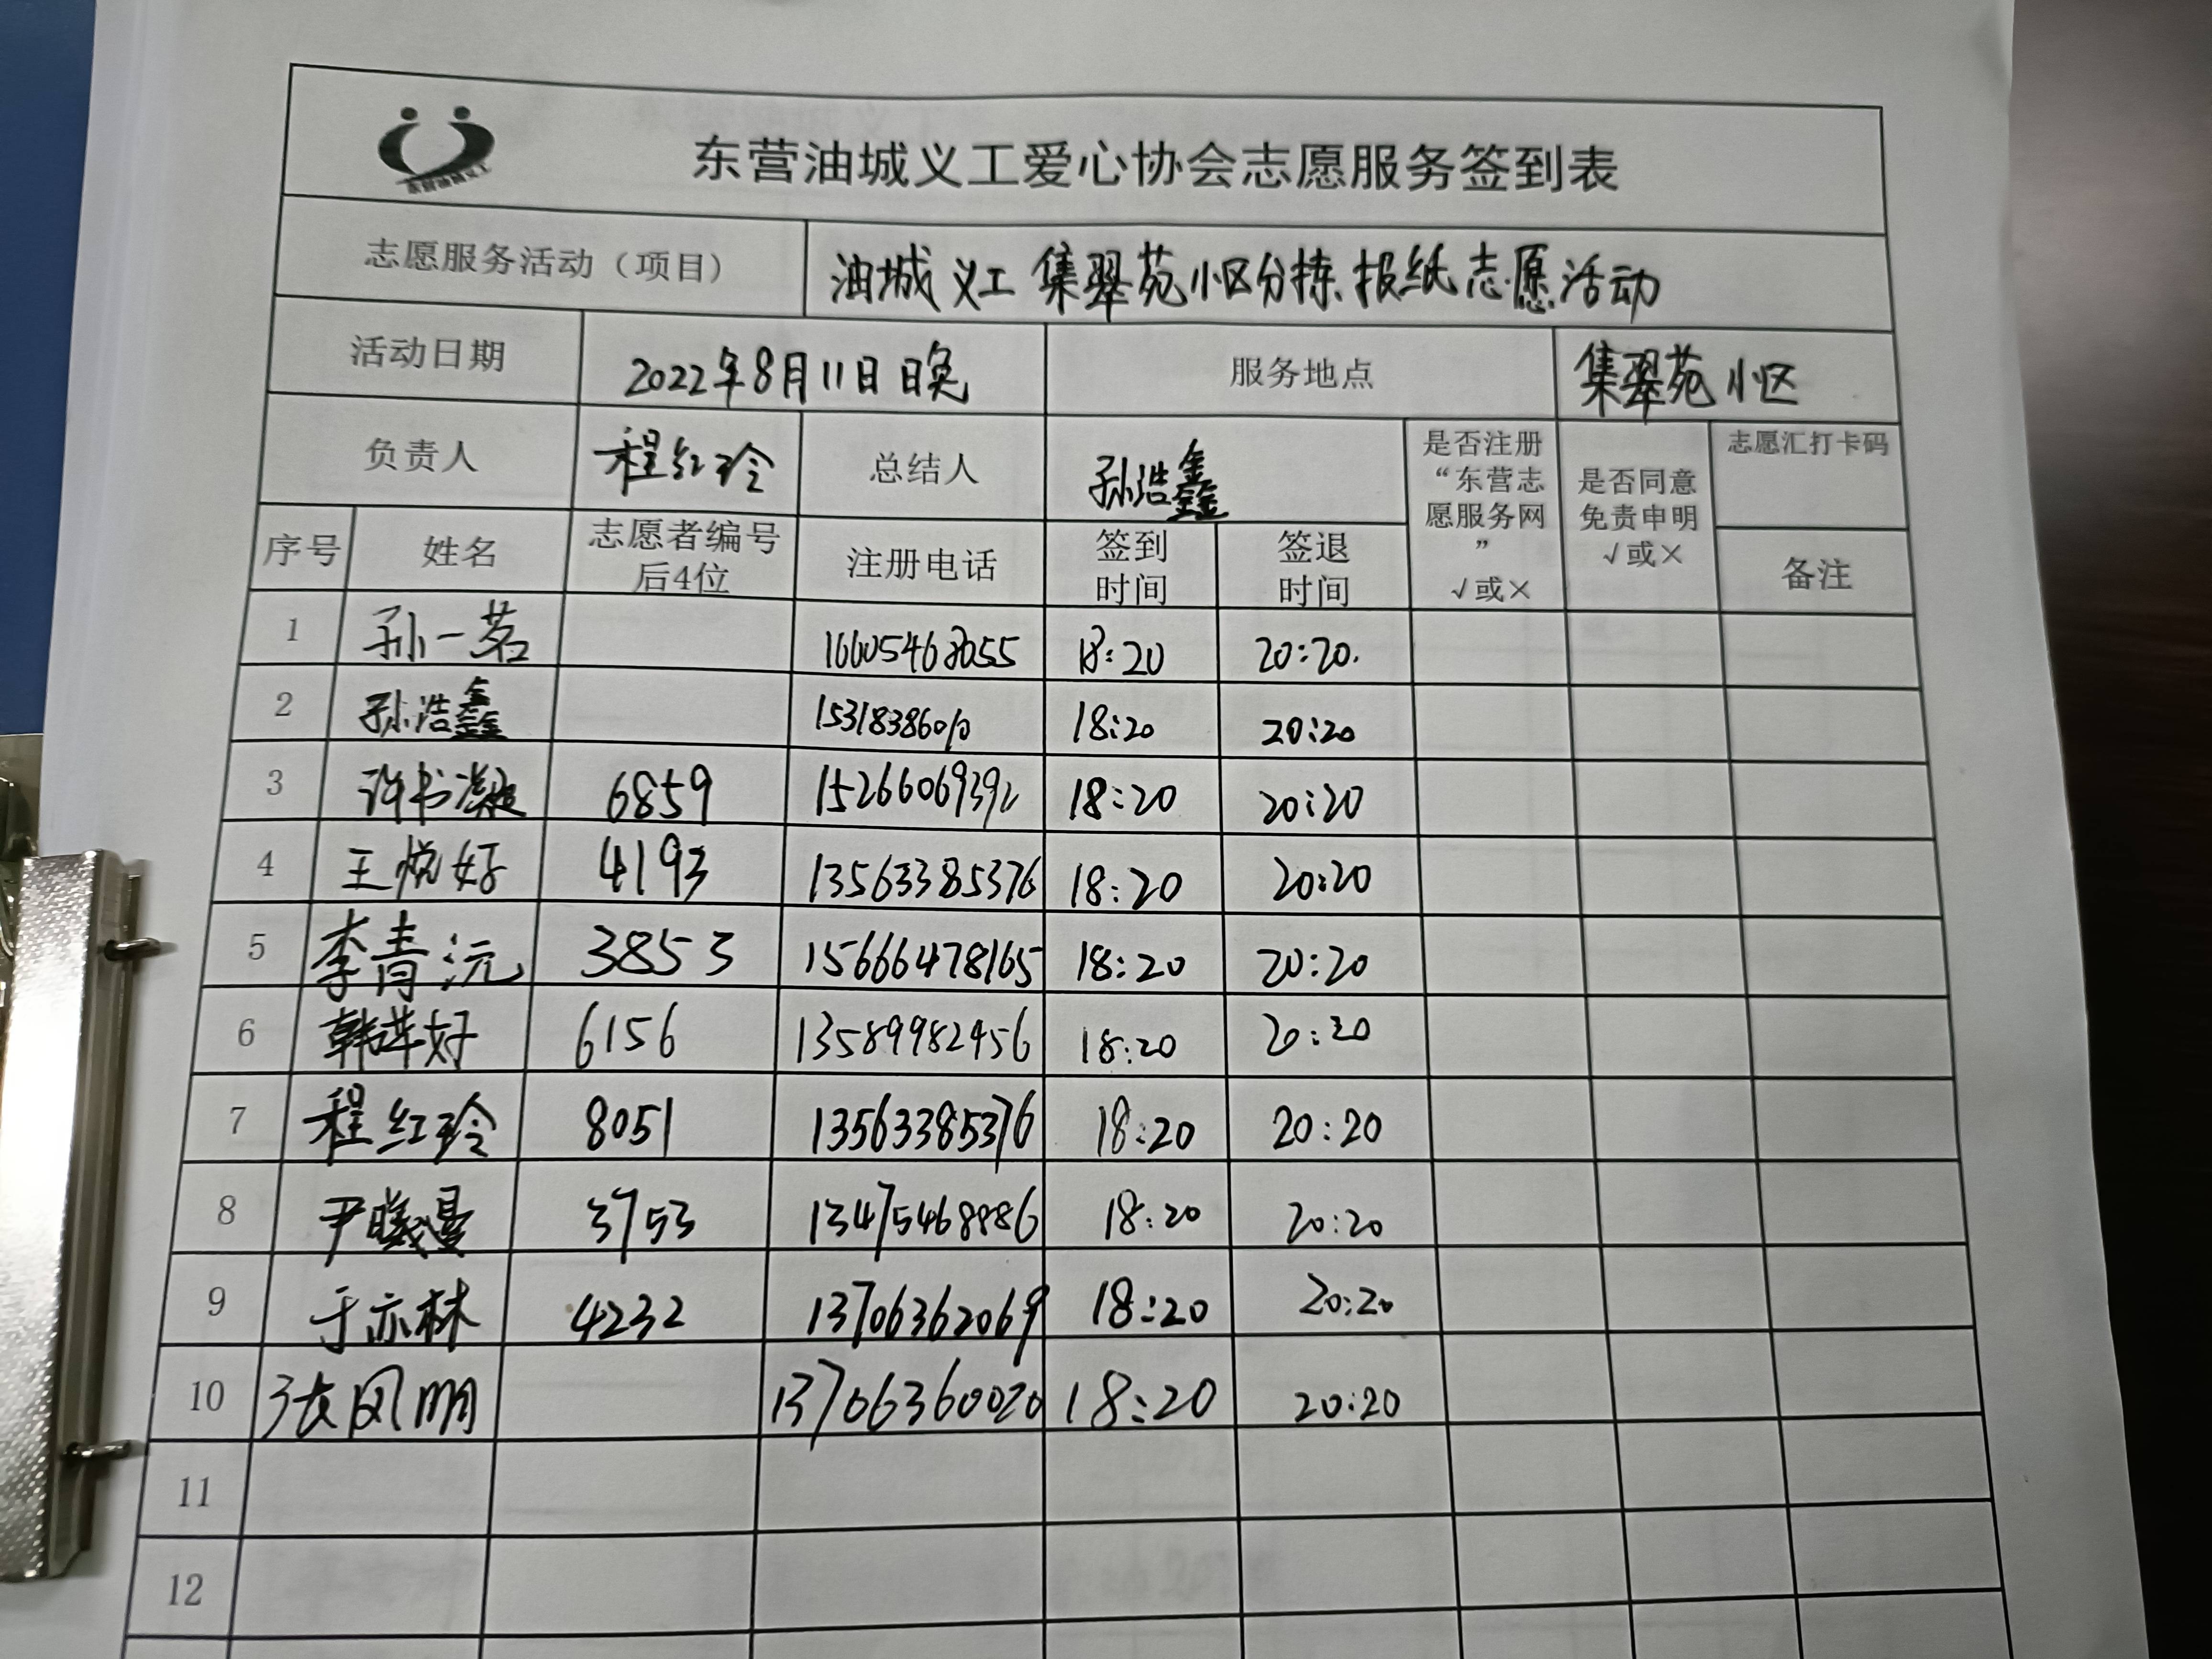 东营油城义工
东营油城义工爱心协会志愿服务签到表
志愿服务活动（项目） 油城义工集翠苑小区分拣报纸志愿活动
活动日期 2022年8月11日晚 服务地点 集翠苑小区
负责人 程红玲 总结人 孙浩鑫 是否注册“东营志愿服务网” √或× 是否同意免责申明 √或× 志愿汇打卡码
序号 姓名 志愿者编号后4位 注册电话 签到时间 签退时间 备注
1 孙一茗 16605468055 18:20 20:20.
2 孙浩鑫 15318386010 18:20 20:20
3 许书凝 6859 15266069392 18:20 20:20
4 王悦好 4193 13563385376 18:20 20:20
5 李青沅 3853 15666478165 18:20 20:20
6 韩苹好 6156 13589982456 18:20 20:20
7 程红玲 8051 13563385376 18:20 20:20
8 尹曦漫 3753 13475468886 18:20 20:20
9 于亦林 4232 13706362069 18:20 20:20
10 张凤明 13706360020 18:20 20:20
11
12